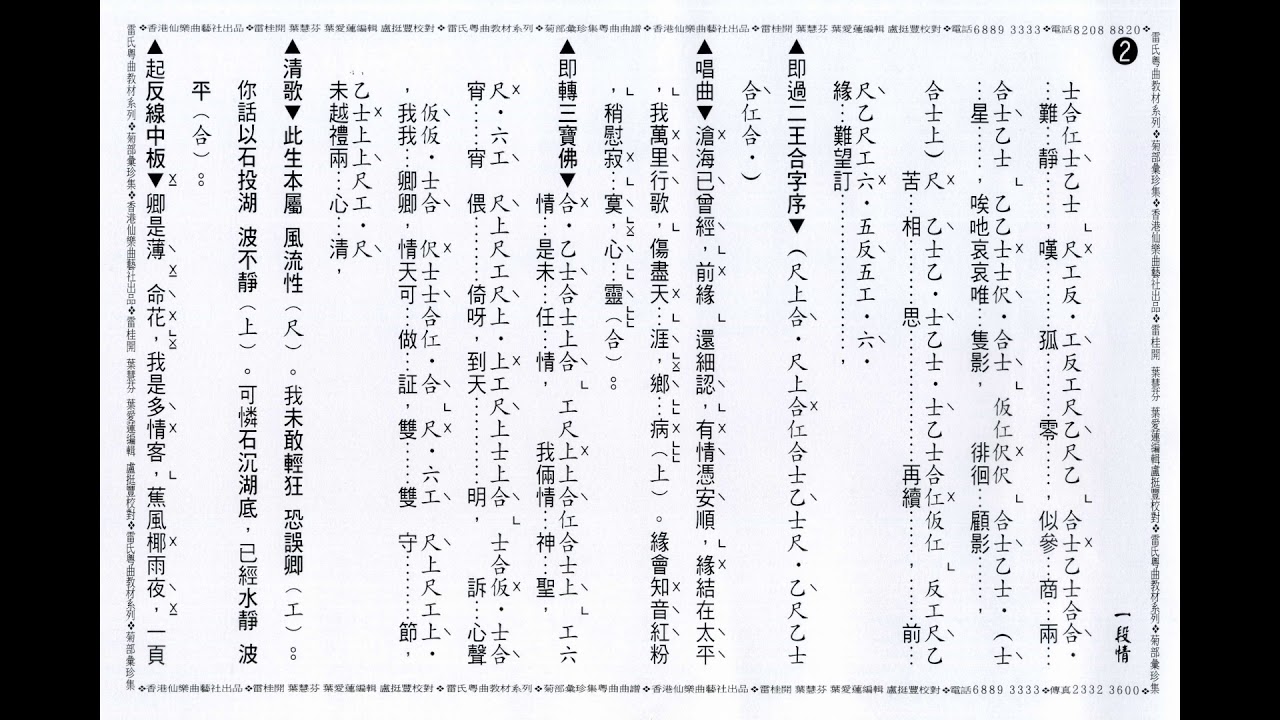 ❖香港仙樂曲藝社出品❖雷桂開 葉慧芬 葉愛蓮編輯 盧挺豐校對❖雷氏粵曲教材系列❖菊部彙珍集粵曲曲譜❖香港仙樂曲藝社出品❖雷桂開 葉慧芬 葉愛蓮編輯 盧挺豐校對❖電話6889 3333❖電話8208 8820❖
雷氏粵曲教材系列❖菊部彙珍集❖香港仙樂曲藝社出品❖雷桂開 葉慧芬 葉愛蓮編輯 盧挺豐校對❖雷氏粵曲教材系列❖菊部彙珍集
2 一段情
士合仜士乙士 尺工反・工反工尺乙尺乙 合士乙士合合・
難⋯靜⋯⋯⋯,嘆⋯⋯⋯⋯孤⋯⋯⋯⋯零⋯⋯⋯,似參⋯商⋯兩⋯
合士乙士 乙乙士士伬・合士 仮仜伬伬 合士乙士・(士
星⋯⋯⋯,唉吔哀哀唯⋯隻影, 徘徊⋯顧影⋯⋯⋯,
合士上)尺 乙士乙・士乙士・士乙士合仜仮仜 反工尺乙
苦⋯相⋯⋯⋯⋯思⋯⋯⋯⋯⋯⋯再續⋯⋯⋯,⋯⋯前⋯
尺乙尺工六・五反五工・六・
緣⋯難望訂⋯⋯⋯⋯⋯⋯⋯,
▲即過二王合字序▼(尺上合・尺上合仜合士乙士尺・乙尺乙士
合仜合・)
▲唱曲▼滄海已曾經,前緣 還細認,有情憑安順,緣結在太平
,我萬里行歌,傷盡天⋯涯,鄉⋯病(上)。緣會知音紅粉
,稍慰寂⋯寞,心⋯靈(合)。
▲即轉三寶佛▼合・乙士合士上合 工尺上上合仜合士上 工六
情⋯是未⋯任⋯情, 我倆情⋯神⋯聖,
尺・六工 尺上尺工尺上・上工尺上士上合 士合仮・士合
宵⋯宵 偎⋯⋯⋯⋯倚呀,到天⋯⋯⋯⋯⋯明, 訴⋯心聲
仮仮・士合 伬士士合仜・合 尺・六工 尺上尺工上・
,我我⋯卿卿,情天可⋯做⋯証,雙⋯雙 守⋯⋯⋯⋯節,
乙士上上尺工・尺
未越禮兩⋯心⋯清,
▲清歌▼此生本屬 風流性(尺)。我未敢輕狂 恐誤卿(工)。
你話以石投湖 波不靜(上)。可憐石沉湖底,已經水靜 波
平(合)。
▲起反線中板▼卿是薄 命花,我是多情客,蕉風椰雨夜,一頁
雷氏粵曲教材系列❖菊部彙珍集❖香港仙樂曲藝社出品❖雷桂開 葉慧芬 葉愛蓮編輯 盧挺豐校對❖雷氏粵曲教材系列❖菊部彙珍集
❖香港仙樂曲藝社出品❖雷桂開 葉慧芬 葉愛蓮編輯 盧挺豐校對❖雷氏粵曲教材系列❖菊部彙珍集粵曲曲譜❖香港仙樂曲藝社出品❖雷桂開 葉慧芬 葉愛蓮編輯 盧挺豐校對❖電話6889 3333❖傳真2332 3600❖